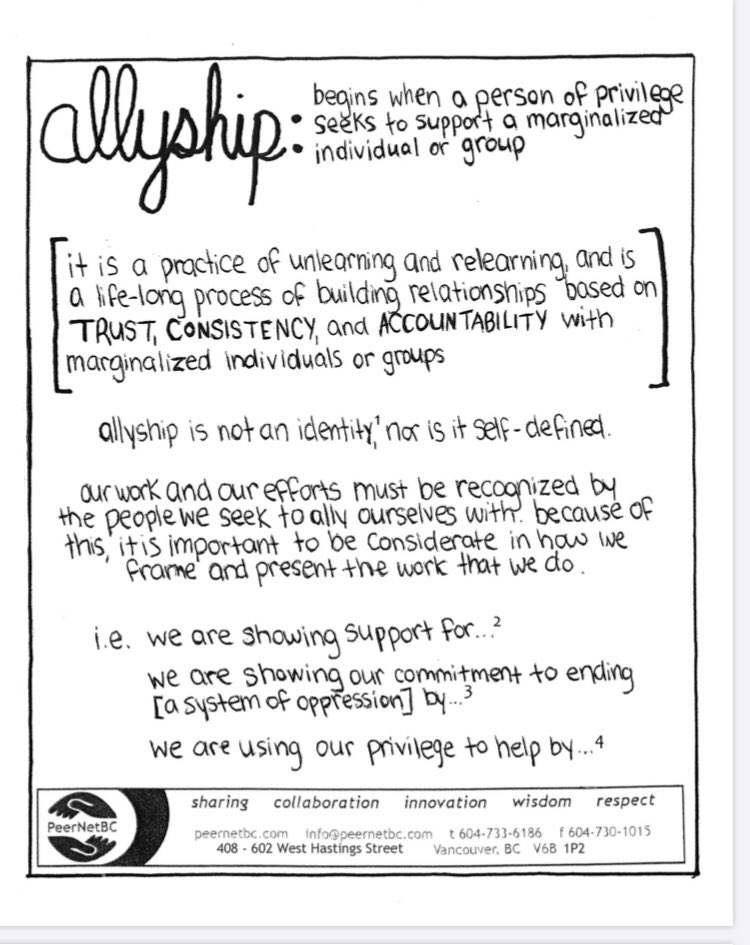 allyship: begins when a person of privilege
seeks to support a marginalized
individual or group
[it is a practice of unlearning and relearning, and is
a life-long process of building relationships based on
TRUST, CONSISTENCY, and ACCOUNTABILITY with
marginalized individuals or groups]
allyship is not an identity,¹ nor is it self-defined.
our work and our efforts must be recognized by
the people we seek to ally ourselves with. because of
this, it is important to be considerate in how we
frame and present the work that we do.
i.e. we are showing support for...²
we are showing our commitment to ending
[a system of oppression] by...³
we are using our privilege to help by...⁴
PeerNetBC
sharing collaboration innovation wisdom respect
peernetbc.com info@peernetbc.com t 604-733-6186 f 604-730-1015
408 - 602 West Hastings Street Vancouver, BC V6B 1P2